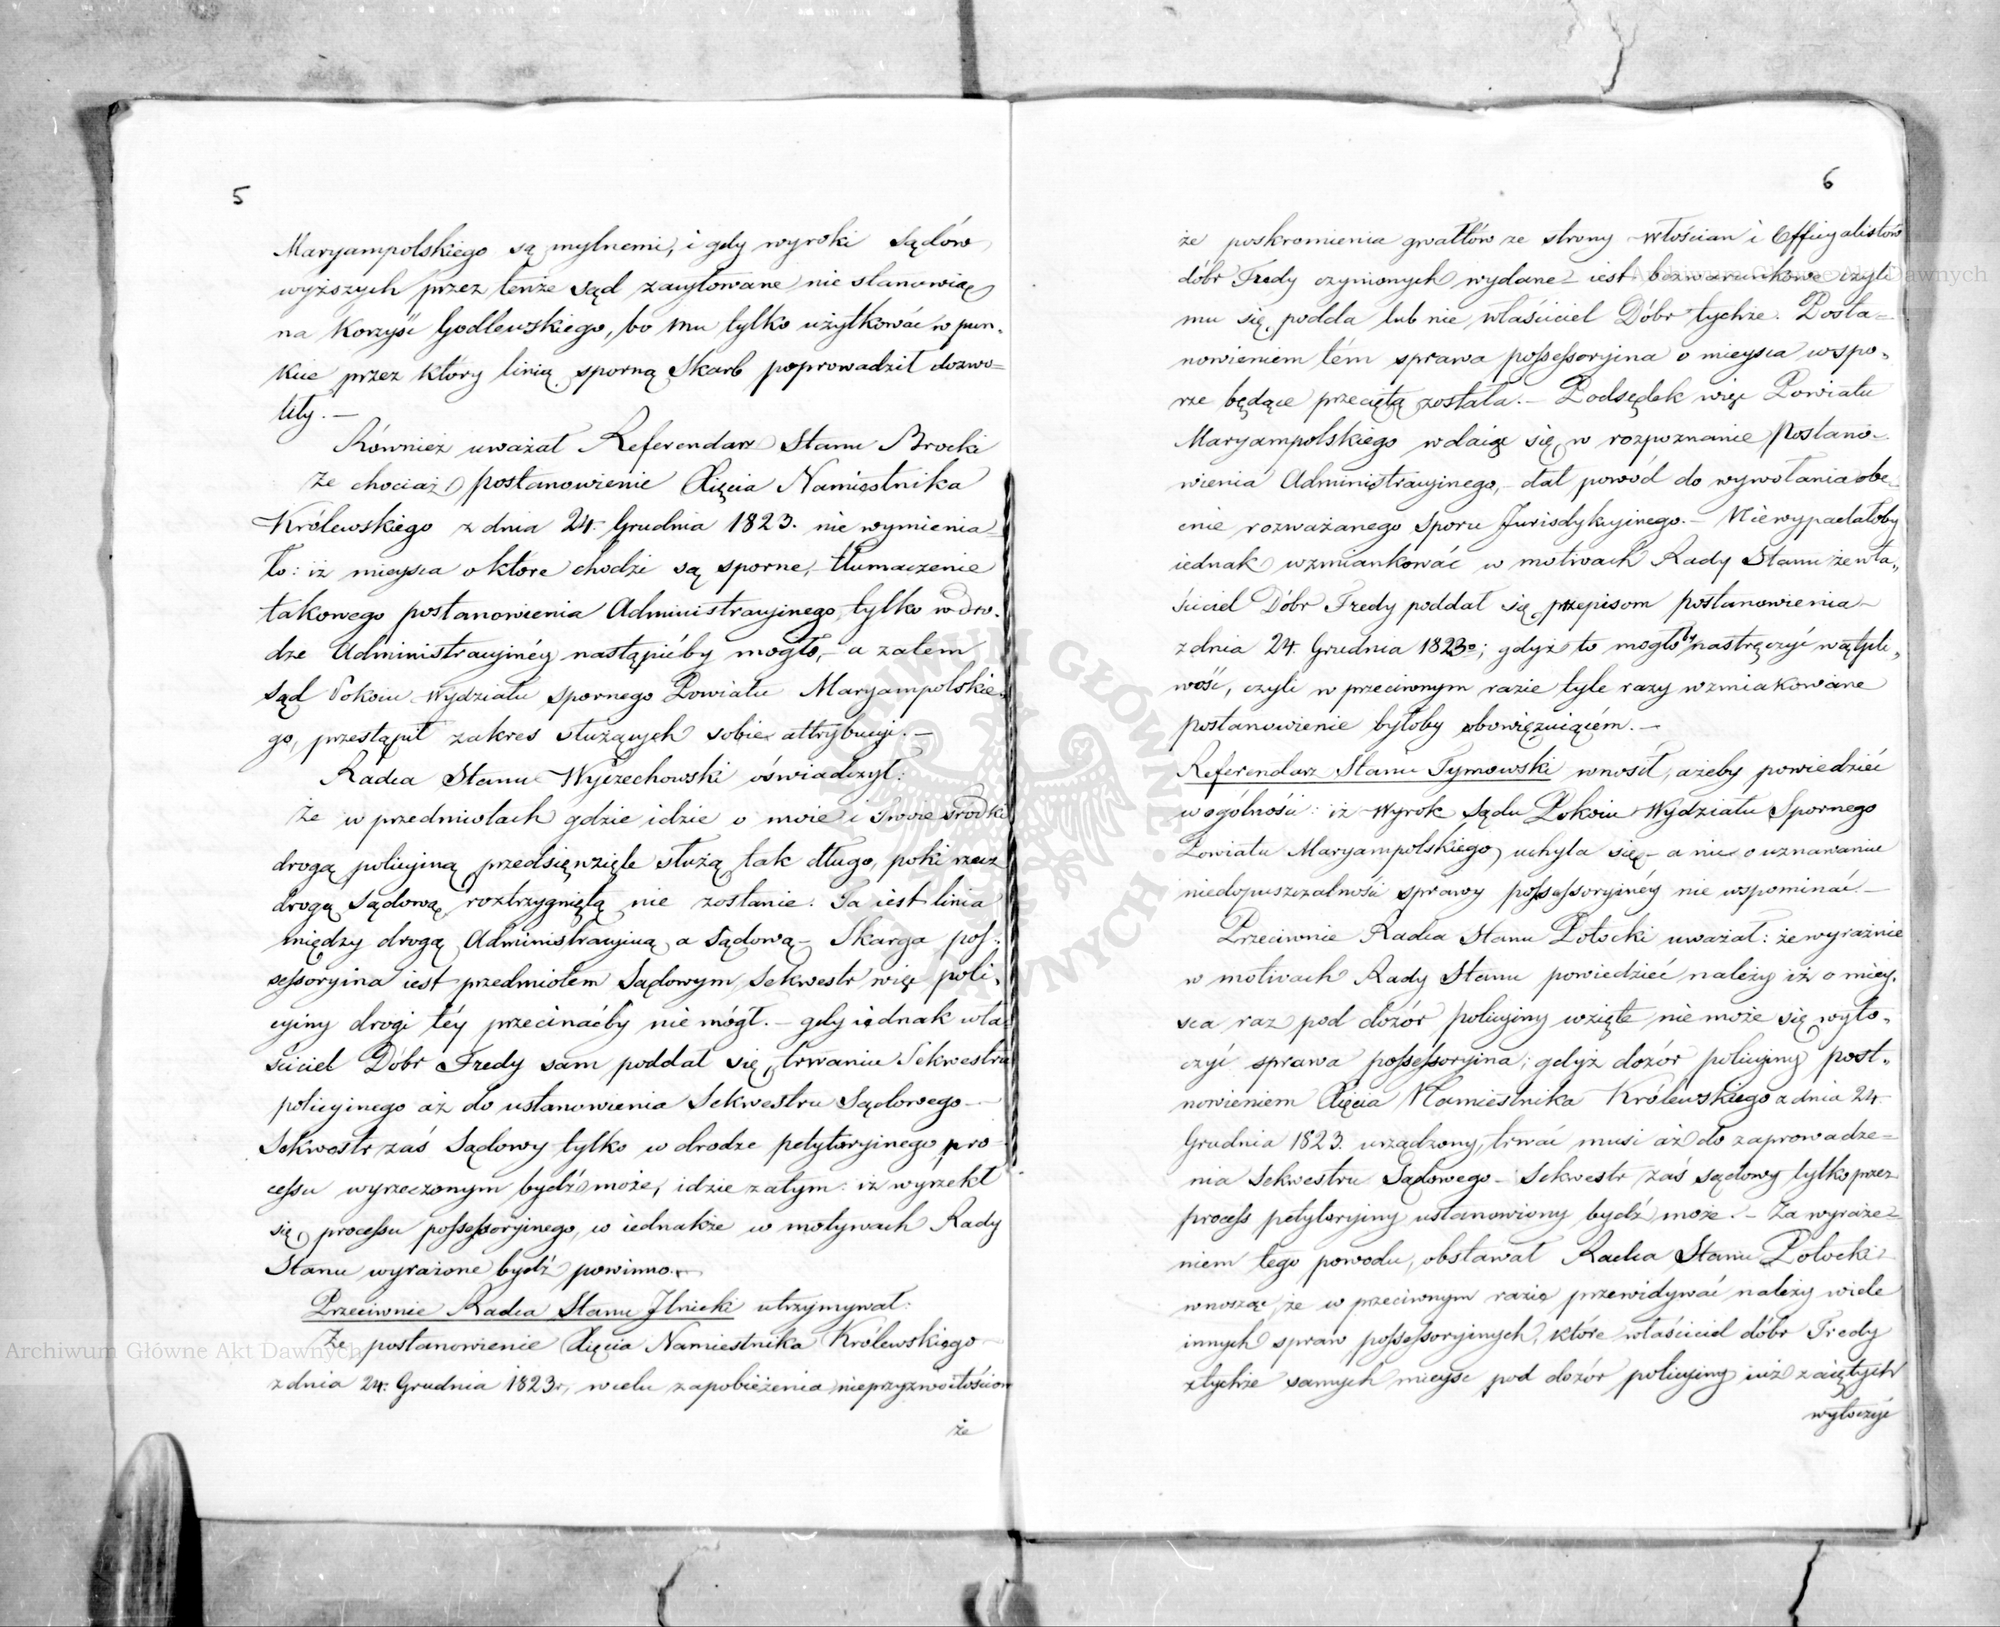 5
Maryampolskiego są mylnemi, i gdy wyroki Sądów
wyższych przez tenże Sąd zacytowane nie stanowią
na korzyść Godlewskiego, bo mu tylko użytkować w pun-
kcie przez który linią sporną Skarb poprowadził dozwo=
liły. —
Również uważał Referendarz Stanu Brocki
że chociaż postanowienie Xięcia Namiestnika
Królewskiego z dnia 24. Grudnia 1823. nie wymienia=
ło: iż mieysca o które chodzi są sporne, tłumaczenie
takowego postanowienia Administracyinego, tylko w dro-
dze Administracyinéy nastąpićby mogło, — a zatem
Sąd Pokoiu Wydziału Spornego Powiatu Maryampolskie-
go, przestąpił zakres służących sobie attrybucyi. —
Radca Stanu Wyczechowski oświadczył:
Że w przedmiotach gdzie idzie o moie i twoie środki
drogą policyiną przedsięwzięte służą tak długo, poki rzecz
drogą Sądową roztrzygniętą nie zostanie. Ta iest linia
między drogą Administracyiną a Sądową — Skarga pos-
sessoryina iest przedmiotem Sądowym, Sekwestr więc poli-
cyiny drogi téy przecinaćby nie mógł. — gdy iednak wła=
ściciel Dóbr Fredy sam poddał się trwaniu Sekwestru
policyinego aż do ustanowienia Sekwestru Sądowego —
Sekwestr zaś Sądowy tylko w drodze petytoryinego pro-
cessu wyrzeczonym bydź może, idzie zatym: iż wyrzekł
się processu possessoryinego, w iednakże w motywach Rady
Stanu wyrażone bydź powinno. —
Przeciwnie Radca Stanu Ilnicki utrzymywał:
Że postanowienie Xięcia Namiestnika Królewskiego
z dnia 24. Grudnia 1823 r, w celu zapobieżenia nieprzyzwoitościom
że
6
że poskromienia gwałtów ze strony Włościan i Officyalistów
dóbr Fredy czynionych wydane — iest bezwarunkowe czyli
mu się podda lub nie właściciel Dóbr tychże. Posta=
nowieniem tém sprawa possessoryina o mieysca w spo-
rze będące przeciętą została. — Podsędek więc Powiatu
Maryampolskiego wdaiąc się w rozpoznanie Postano-
wienia Administracyinego, — dał powód do wywołania obe-
cnie rozważanego Sporu Jurisdykcyinego. — Nie wypadałoby
iednak wzmiankować w motivach Rady Stanu że wła-
ściciel Dóbr Fredy poddał się przepisom postanowienia
z dnia 24. Grudnia 1823o; gdyż to mogłoby nastręczyć wątpli-
wość, czyli w przeciwnym razie tyle razy wzmiakowane
postanowienie byłoby obowięzuiącém. —
Referendarz Stanu Tymowski wnosił, ażeby powiedzieć
w ogólności: iż Wyrok Sądu Pokoiu Wydziału Spornego
Powiatu Maryampolskiego, uchyla się — a nie o uznawaniu
niedopuszczalności sprawy possessoryinéy nie wspominać. —
Przeciwnie Radca Stanu Potocki uważał: że wyraźnie
w motivach Rady Stanu powiedzieć należy iż o miey-
sca raz pod dozór policyiny wzięte nie może się wyto-
czyć sprawa possessoryina; gdyż dozór policyiny post-
nowieniem Xięcia Namiestnika Królewskiego z dnia 24.
Grudnia 1823. urządzony, trwać musi aż do zaprowadze=
nia Sekwestru Sądowego — Sekwestr zaś sądowy tylko przez
process petytoryiny ustanowiony bydź może. — Za wyraże=
niem tego powodu, obstawał Radca Stanu Potocki
wnosząc, że w przeciwnym razie przewidywać należy wiele
innych spraw possessoryinych, które właściciel dóbr Fredy
z tychże samych mieysc pod dozór policyiny iuż zaiętych
wytoczyć